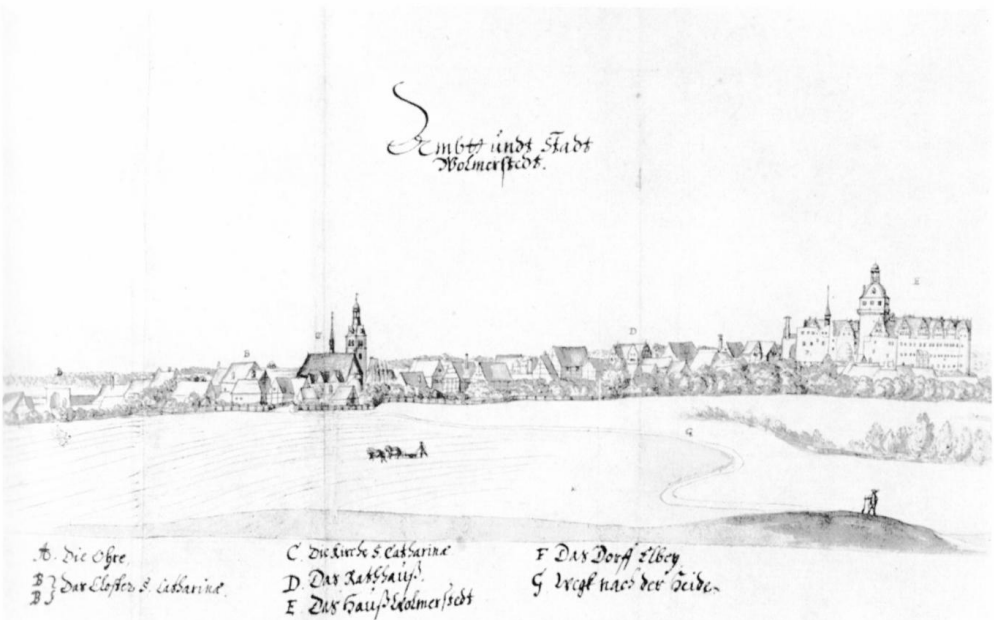 Ambtt undt Stadt
Wolmerstedt.
D
B
G
A. Die Ohre.
B } Das Closter S. Catharinæ.
B }
C. Die Kirche S. Catharinæ
D. Das Rathhauß.
E. Das Hauß Wolmerstedt
F Das Dorff Elbey
G. Wegk nach der Heide.